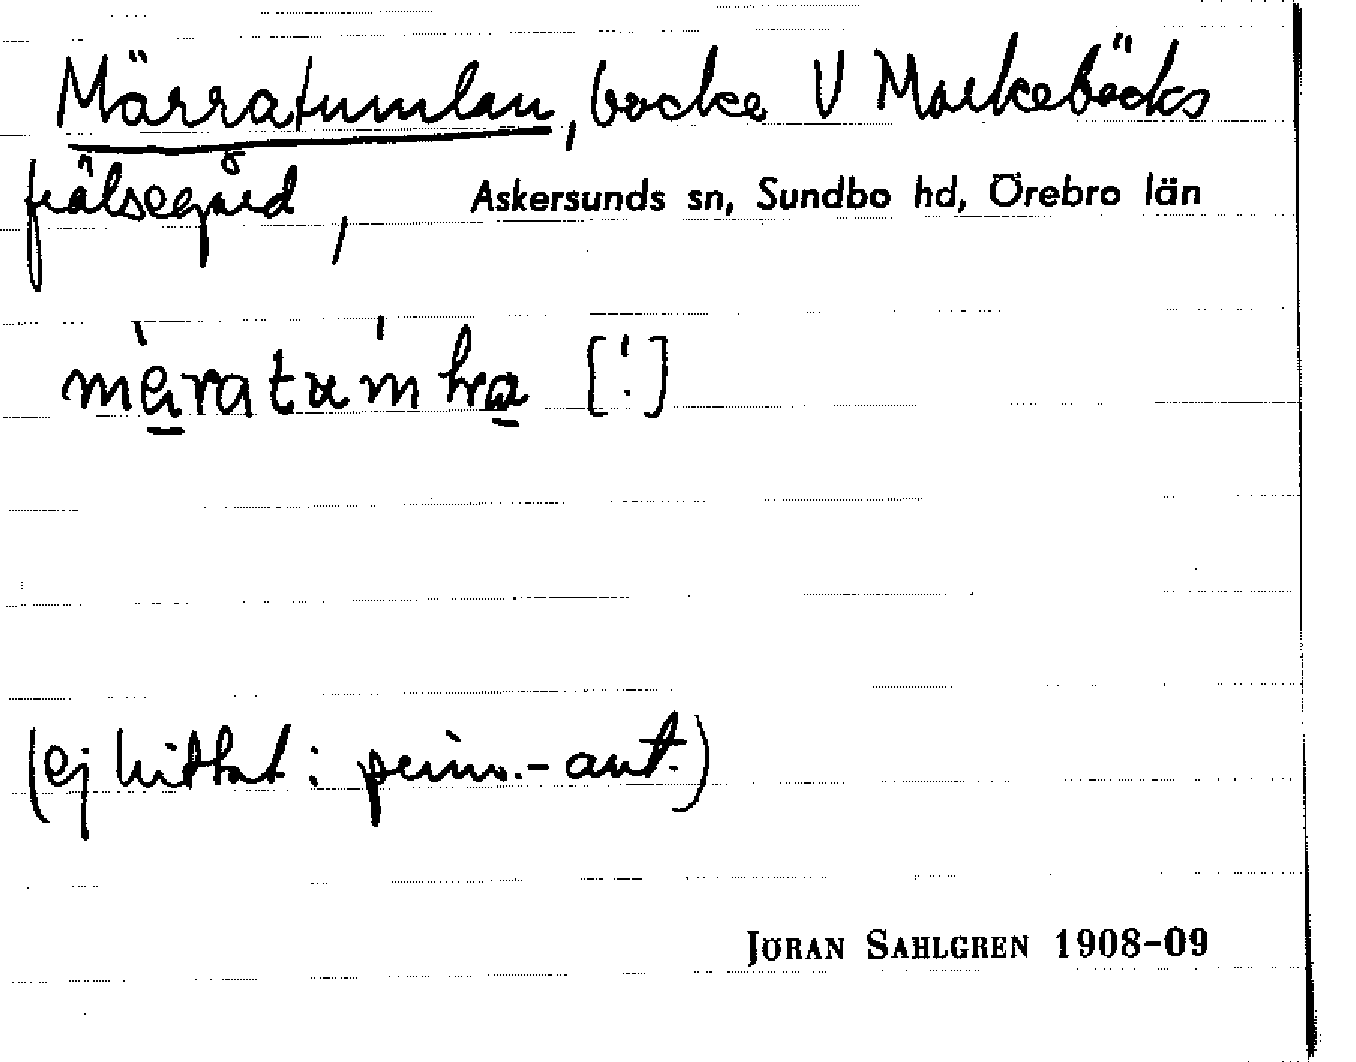 Märratumlan, backe V Markebäcks
frälsegård, Askersunds sn, Sundbo hd, Örebro län
märatumhra [!]
(ej hittat: prim.-ant.)
JÖRAN SAHLGREN 1908-09